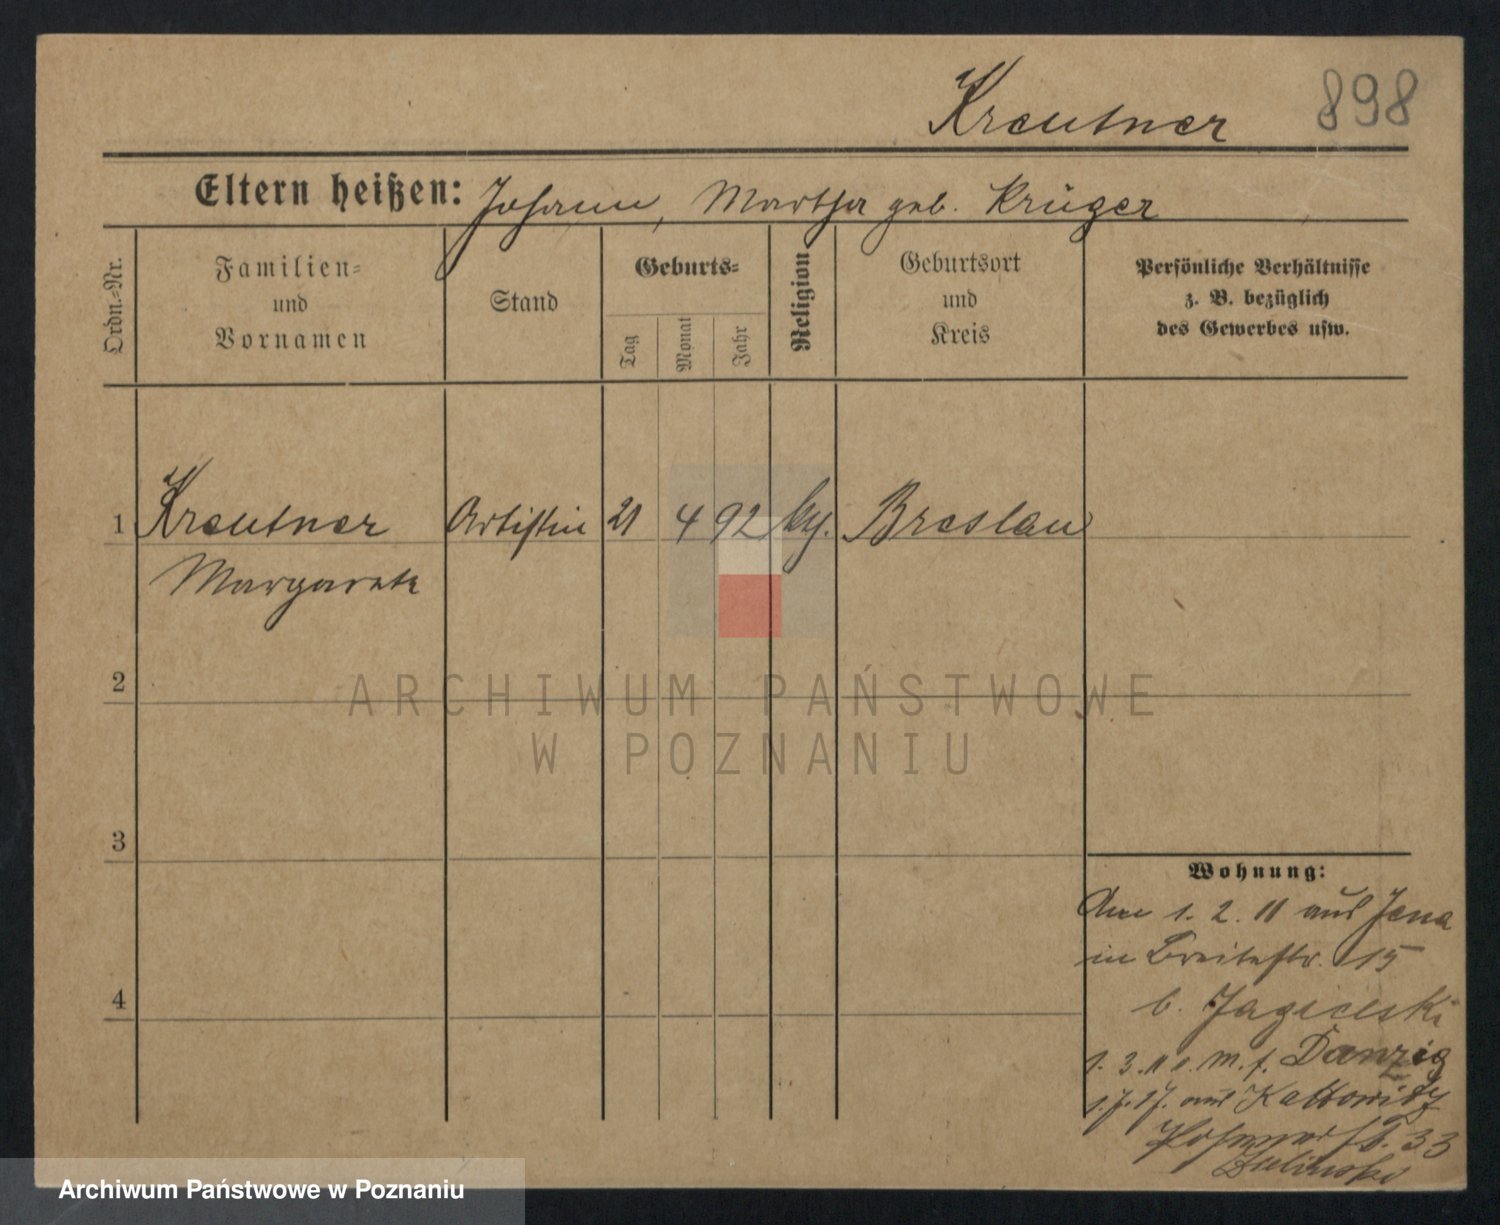 Kreutner 898
Eltern heißen: Johann, Martha geb. Krüger
Ordn.=Nr.
Familien=
und
Vornamen
Stand
Geburts=
Tag
Monat
Jahr
Religion
Geburtsort
und
Kreis
Persönliche Verhältnisse
z. B. bezüglich
des Gewerbes usw.
1 Kreutner Artistin 21 4 92 Breslau
Margarete
2
3
4
Wohnung:
Am 1. 2. 11 aus Jena
in Breitestr. 15
b. Jagielski
1. 3. 11 Danzig
aus Kattowitz
33
Zielinski
ARCHIWUM PAŃSTWOWE
W POZNANIU
Archiwum Państwowe w Poznaniu